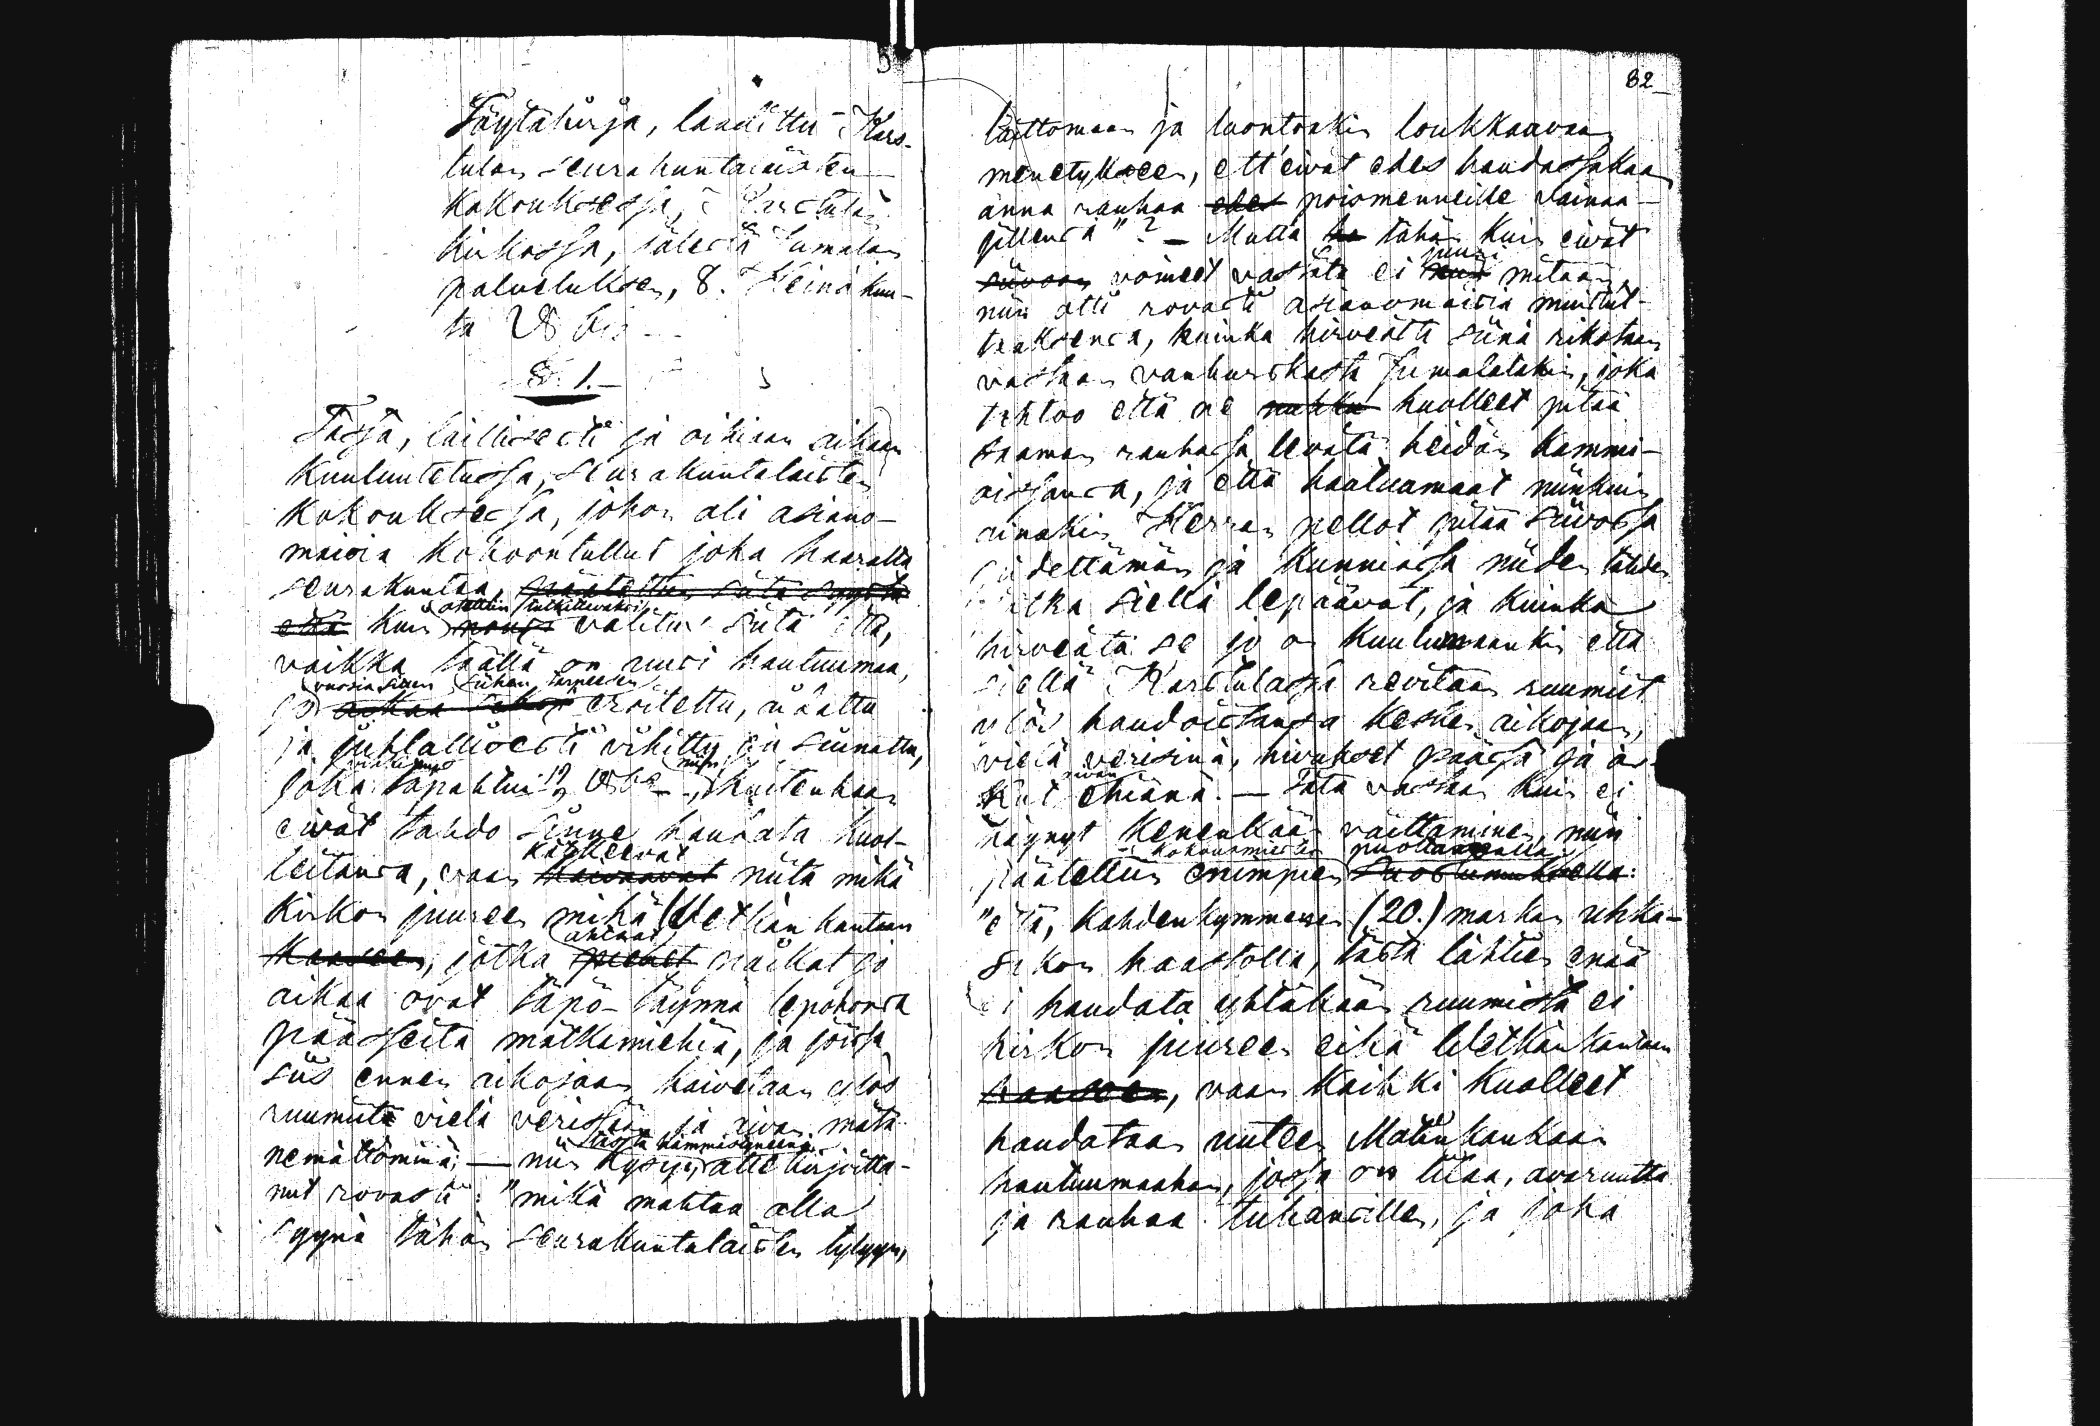 Pöytäkirja, laadittu Kars-
tulan seurakuntalaisten
kokouksessa, Karstulan
kirkossa, jälestä Jumalan
palveluksen, 8. Heinäkuu-
ta
§. 1.
Tässä, laillisesti ja oikiaan aikaan
kuuluutetussa, seurakuntalaisten
kokouksessa, johon oli asiano-
maisia kokoontullut joka haaralta
seurakuntaa, päätettiin siitä syystä
että kuin nousi otettiin tutkittavaksi valitus siitä että,
vaikka täällä on uusi hautuumaa,
jo vuosia sitten siihen tarpeeseen eroitettu, aidattu
ja juhlallisesti vihitty ja siunattu,
joka tapahtui niin kuitenkaan
eivät tahdo sinne haudata kuol-
leitansa, vaan kaivaavat kätkeevät niitä mikä
kirkon juureen mikä Wetkän kantaan
kaaseen, jotka pienet ahtaat paikat jo
aikaa ovat täpö-täynnä lepohonsa
päässeitä matkamiehiä, ja joissa
siis ennen aikojaan kaivetaan ylös
ruumiita vielä verissään ja aivan mätä
nemättöminä; — niin kysyi, tästä hämmästyneenä allekirjoitta-
nut rovasti: "mikä mahtaa olla
syynä tähän seurakuntalaisten tylyyn,
82
laittomaan ja luontoakin loukkaavaan
menetykseen, ett'eivät edes haudassakaan
anna rauhaa edes poismenneille vainaa-
jillensa"? — Mutta ko tähän kuin eivät
siivoon voineet vastata ei juuri mitään,
niin otti rovasti asianomaisia muistut-
taaksensa, kuinka hirveästi siinä rikotaan
vastaan vanhurskasta Jumalatakin, joka
tahtoo että ne nukku kuolleet pitää
saaman rauhassa levätä heidän kammi-
oissansa, ja että hautuumaat niinkuin
ainakin Herran pellot pitää siivossa
pidettämän ja kunniassa niiden tähden
jotka siellä lepäävät, ja kuinka
hirveätä se jo on kuulumaankin että
siellä Karstulassa revitään ruumiit
ylös haudoistansa kesken aikojaan,
vielä verisinä, hivukset päässä ja ar-
kut aivan ehiänä. — Tätä vastaan kuin ei
käynyt kenenkään väittäminen, niin
päätettiin enimpien kokousmiesten suostumuksella puoltamalla:
"että, kahdenkymmenen (20.) markan uhka-
sakon haastolla, tästä lähtien enää
ei haudata yhtäkään ruumista ei
kirkon juureen eikä Wetkän kantaan
kaaseen, vaan kaikki kuolleet
haudataan uuteen Matinkankaan
hautuumaahan, jossa on tilaa, avaruutta
ja rauhaa tuhansille, ja joka